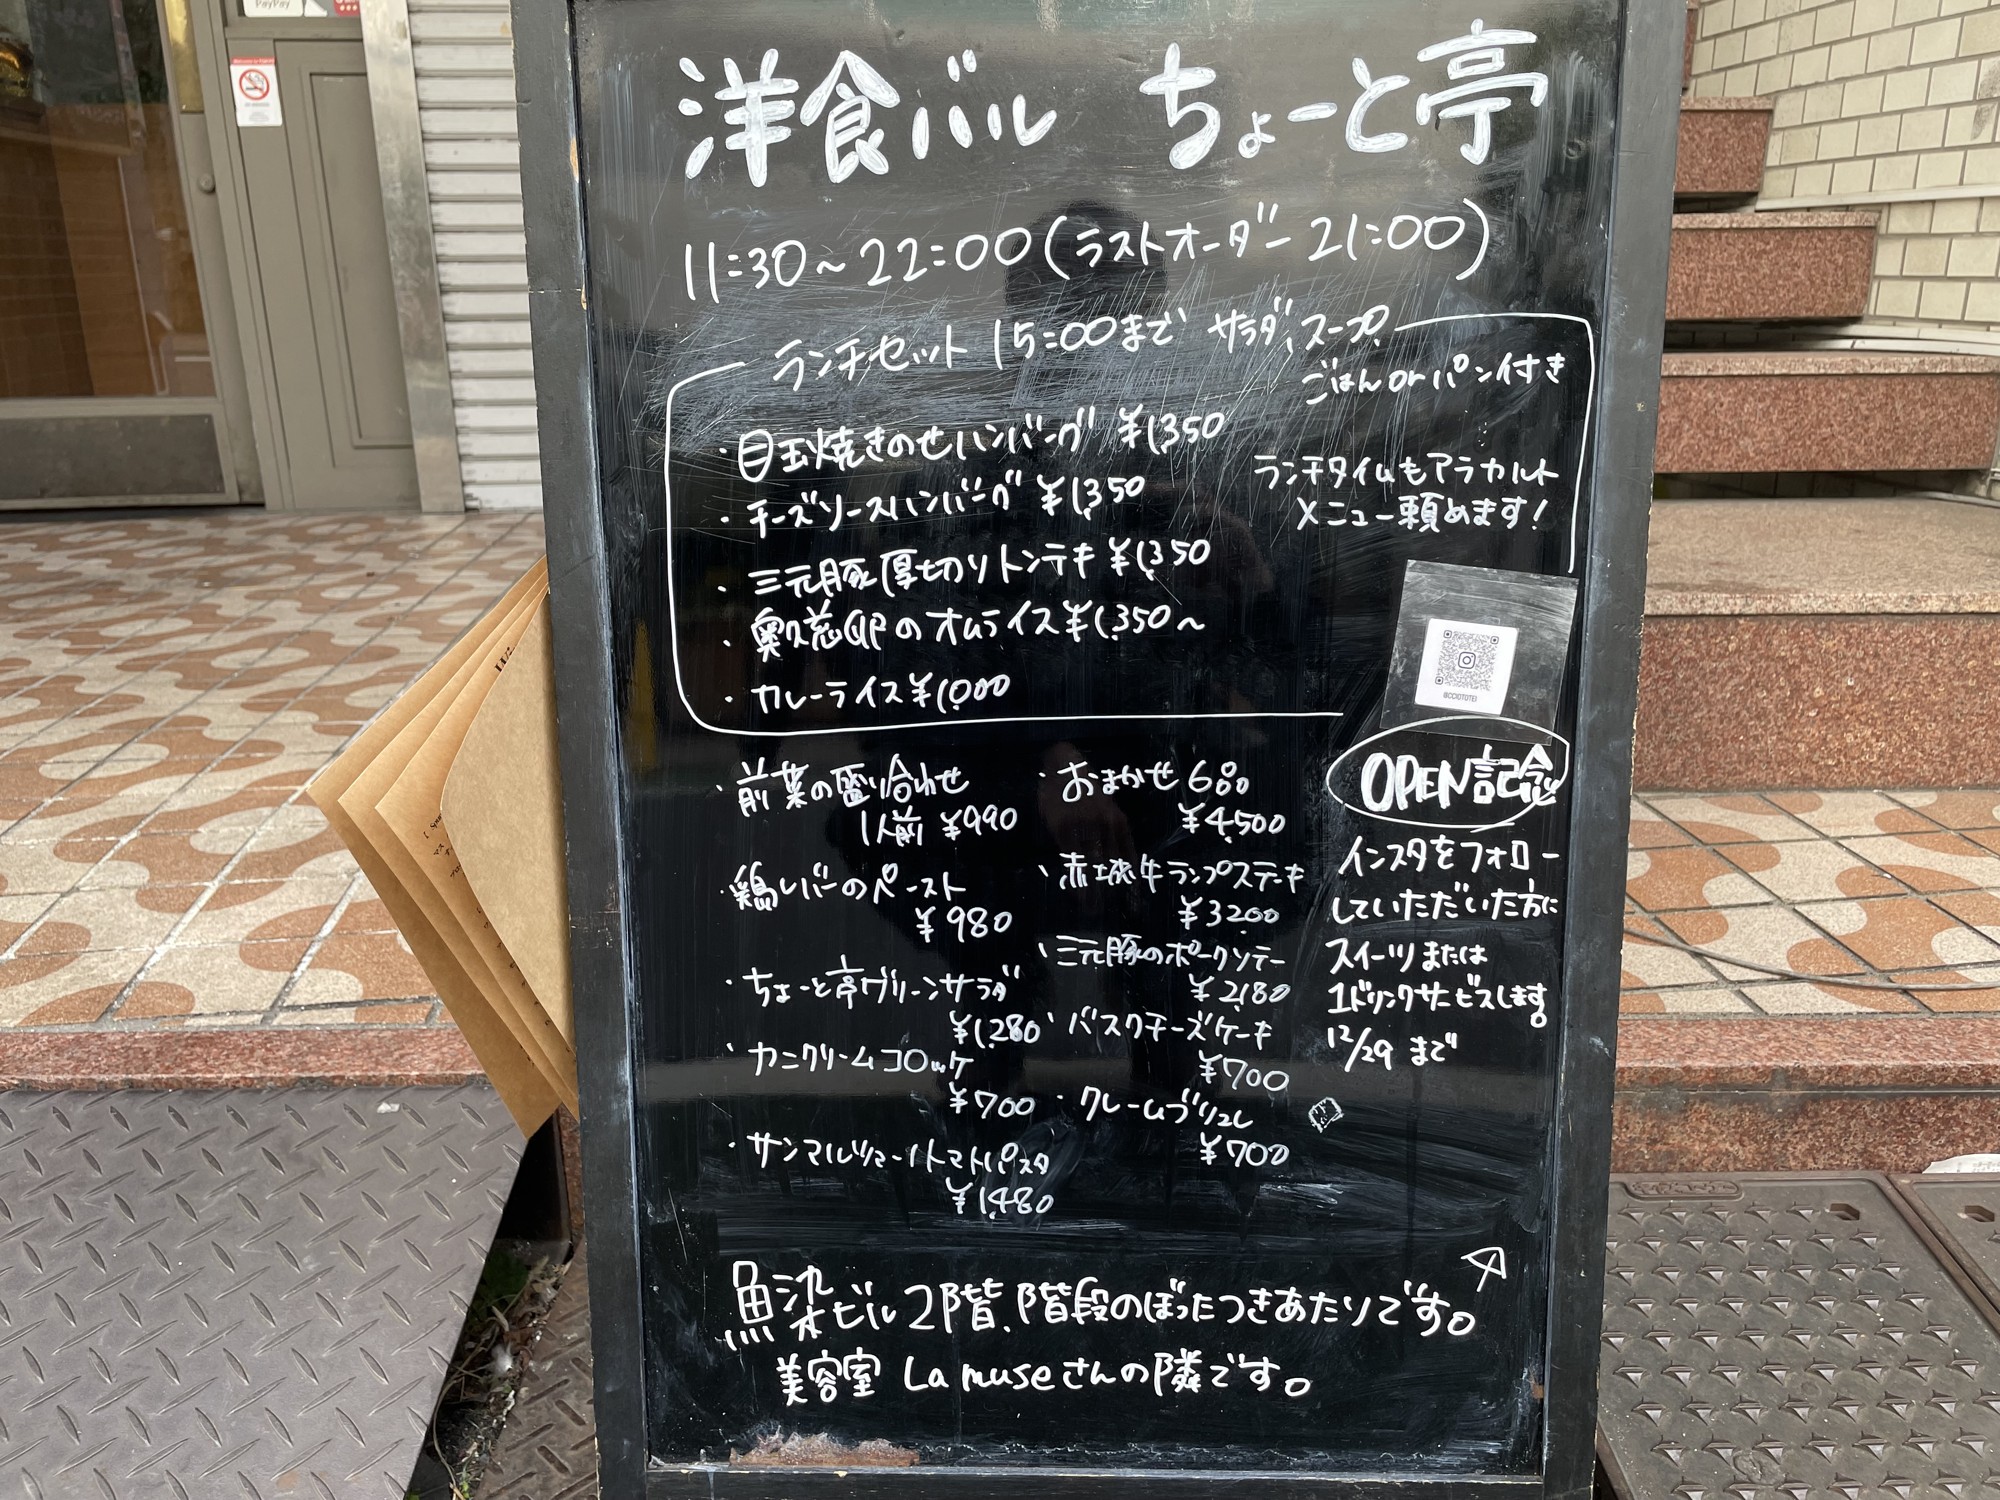 PayPay
洋食バル ちょーと亭
11:30～22:00(ラストオーダー21:00)
ランチセット 15:00まで サラダ、スープ
ごはんorパン付き
・目玉焼きのせハンバーグ ¥1,350
・チーズソースハンバーグ ¥1,350
・三元豚厚切りトンテキ ¥1,350
・奥久慈卵のオムライス ¥1,350～
・カレーライス ¥1,000
ランチタイムもアラカルト
メニュー頼めます!
@CCIOTOTEI
・前菜の盛り合わせ
1人前 ¥990
・鶏レバーのペースト
¥980
・ちょーと亭グリーンサラダ
¥1,280
・カニクリームコロッケ
¥700
・サンマルツァーノトマトパスタ
¥1,480
・おまかせ6品
¥4,500
・赤城牛ランプステーキ
¥3,200
・三元豚のポークソテー
¥2,180
・バスクチーズケーキ
¥700
・クレームブリュレ
¥700
OPEN記念
インスタをフォロー
していただいた方に
スイーツまたは
1ドリンクサービスします。
12/29 まで
魚染ビル2階、階段のぼったつきあたりです。
美容室 La museさんの隣です。